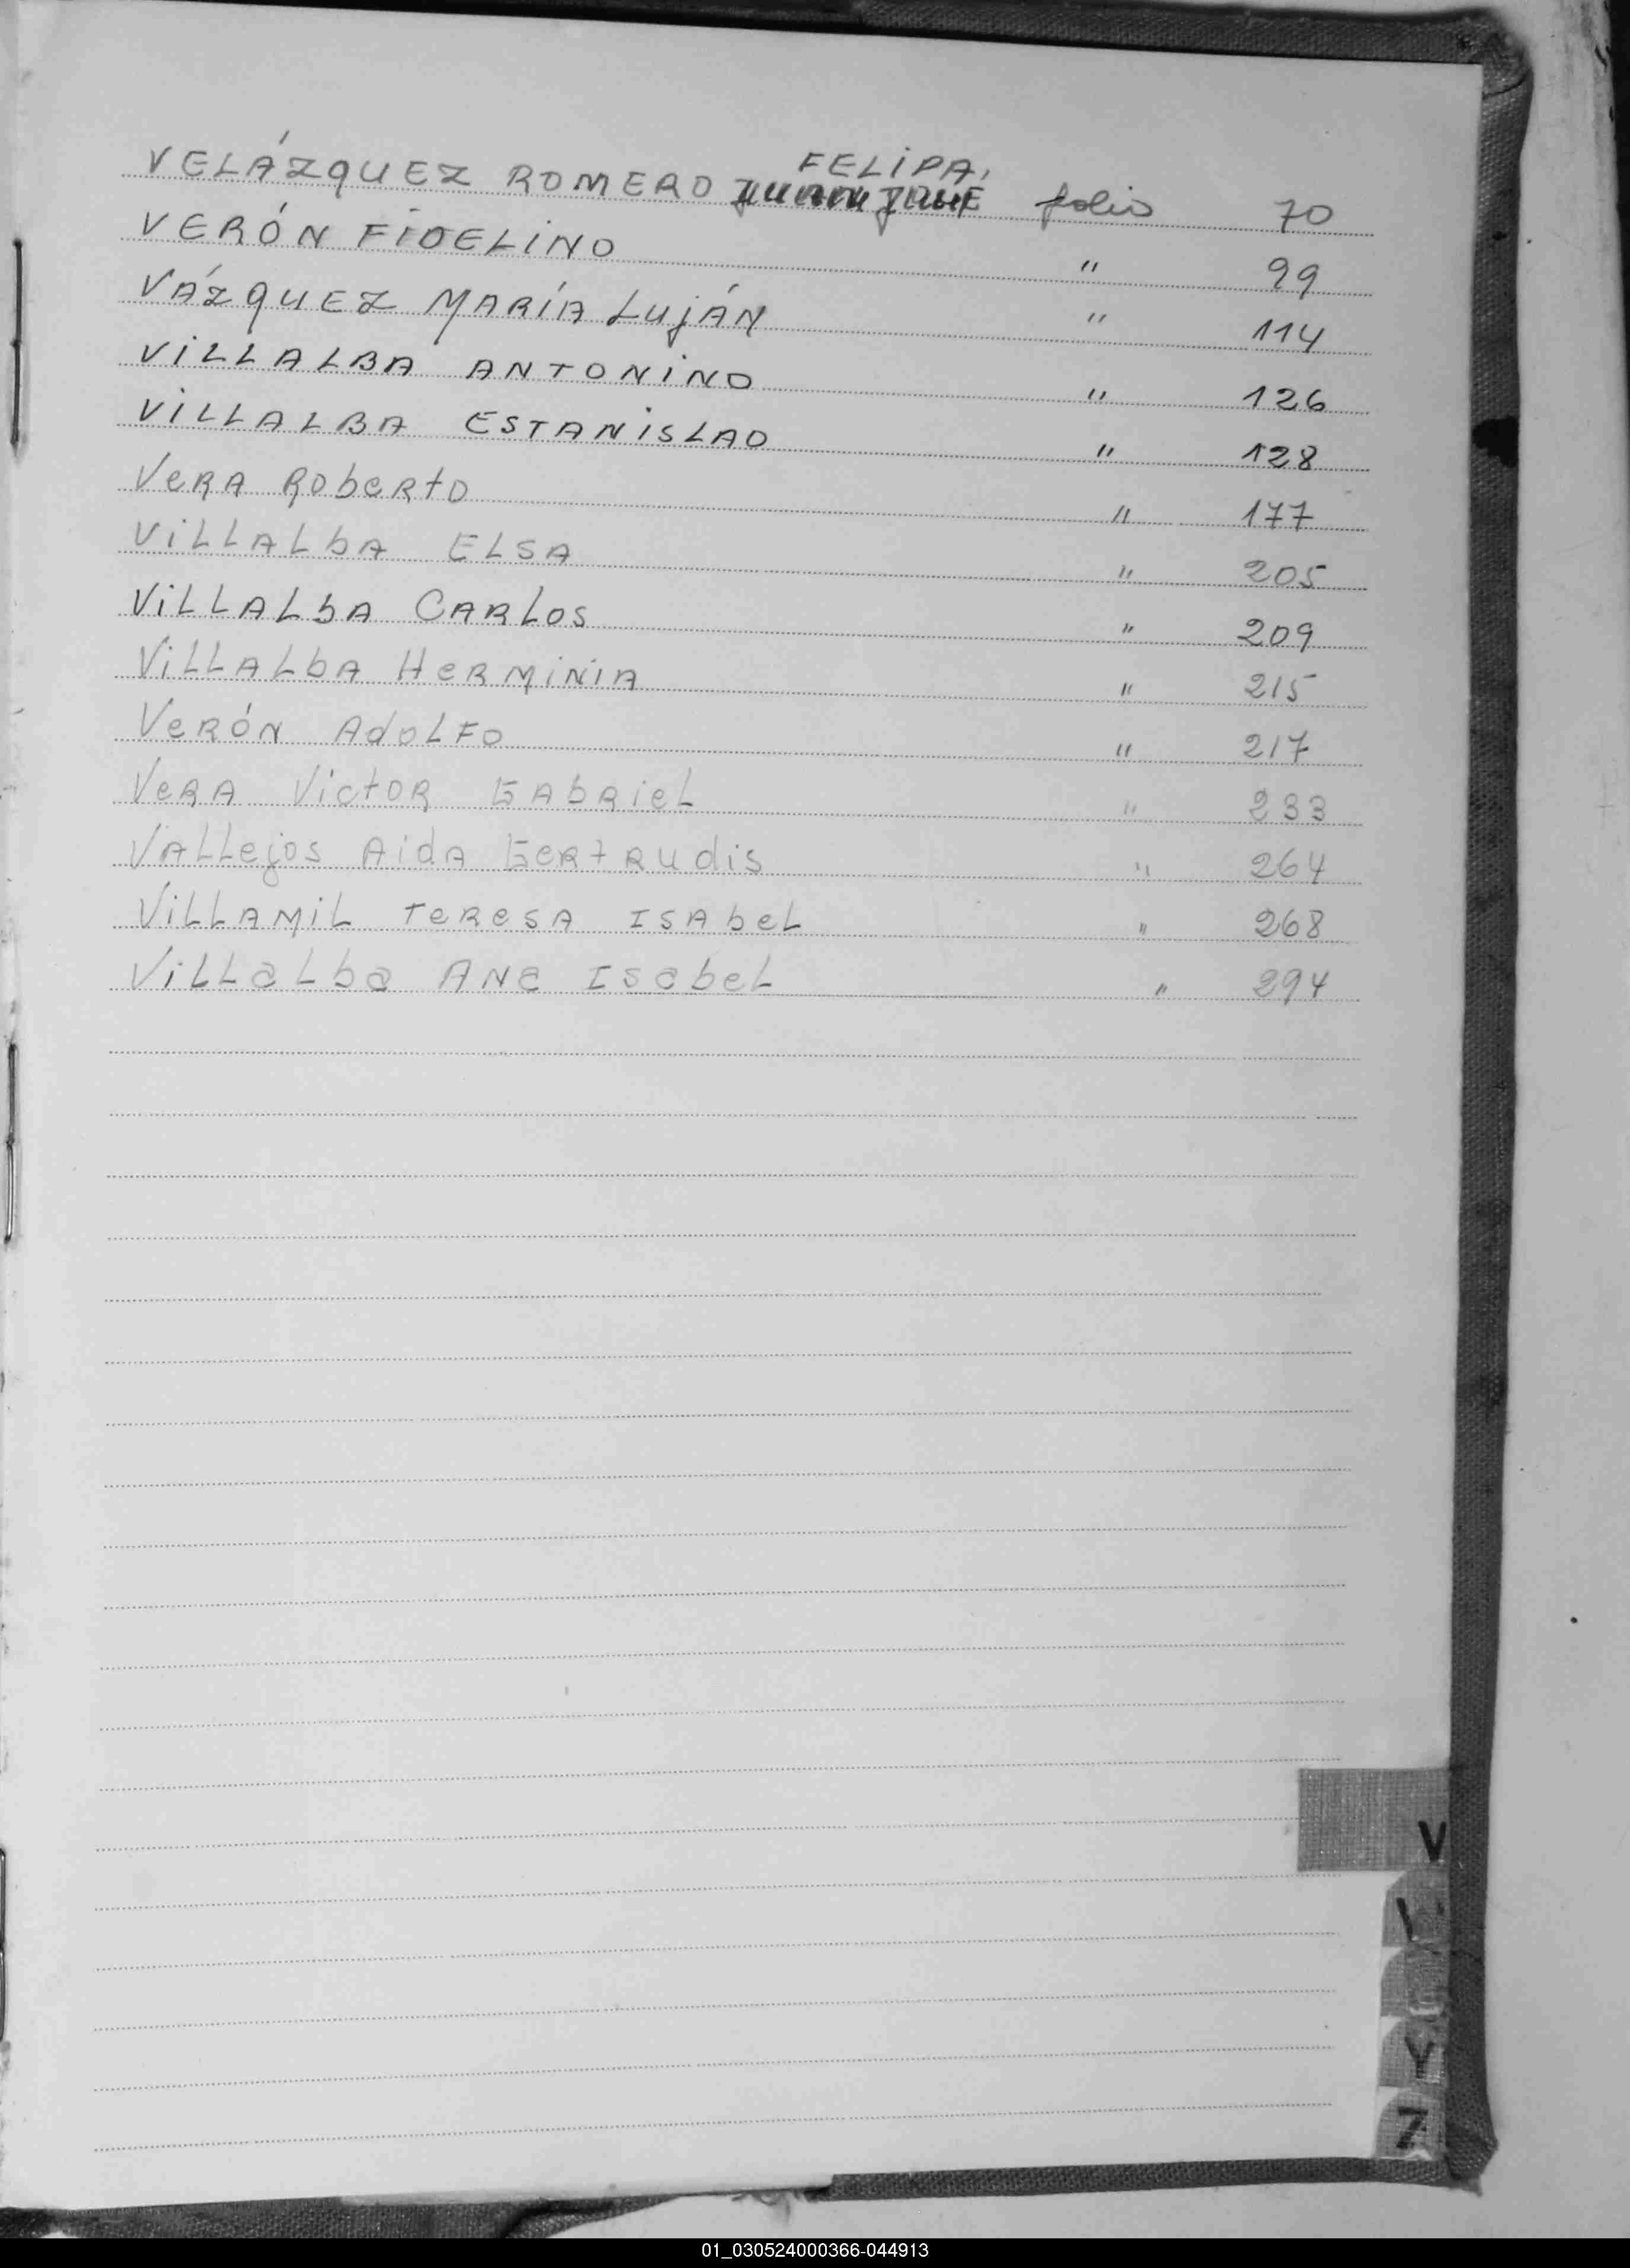 VELÁZQUEZ ROMERO FELIPA, folio 70
VERÓN FIDELINO " 99
VÁZQUEZ MARÍA LUJÁN " 114
VILLALBA ANTONINO " 126
VILLALBA ESTANISLAO " 128
VERA Roberto " 177
VILLALbA ELSA " 205
VILLALbA CARLOS " 209
VILLALbA HERMINIA " 215
VERÓN AdOLFO " 217
VERA VictOR GAbRieL " 233
VALLejos AidA GeRtRudis " 264
VILLAMIL TERESA ISAbeL " 268
ViLLaLba ANa IsabeL " 294
V
Y
Z
01_030524000366-044913